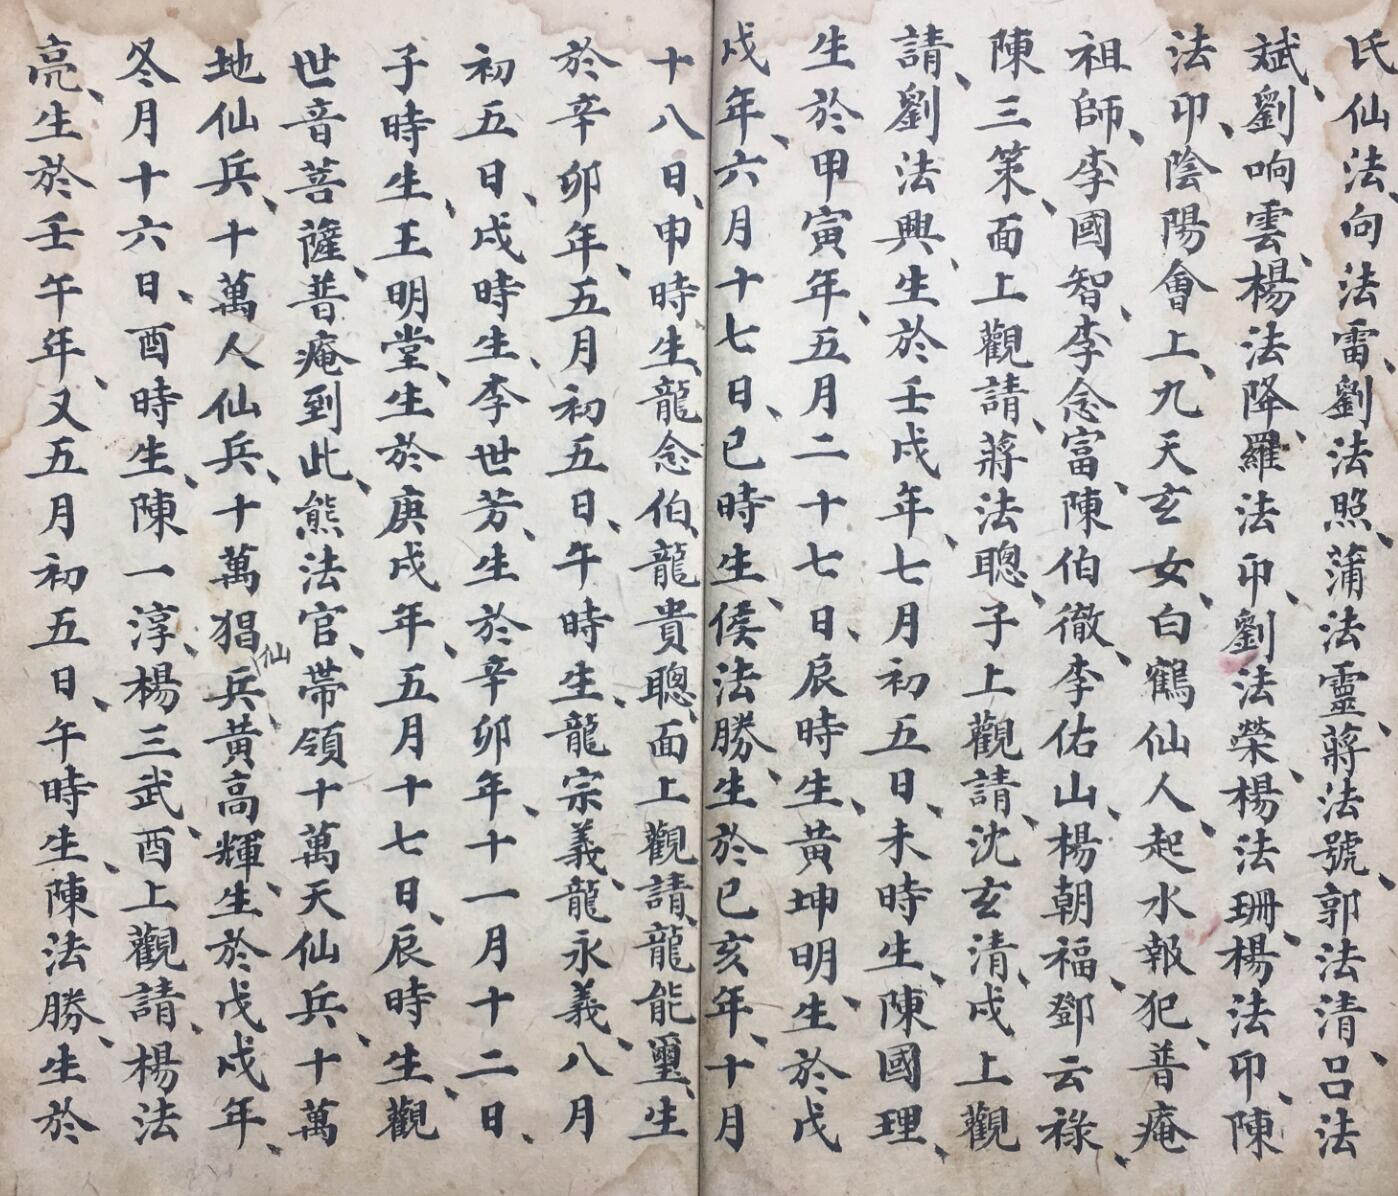 氏仙法、向法雷、劉法照、蒲法靈、蔣法號、郭法清、吕法
斌、劉响雲、楊法降、羅法印、劉法榮、楊法珊、楊法印、陳
法印、陰陽會上、九天玄女、白鶴仙人、起水報犯、普庵
祖師、李國智、李念富、陳伯徹、李佑山、楊朝福、鄧云祿、
陳三策、面上觀請、蔣法聰、子上觀請、沈玄清、戌上觀
請、劉法興、生於壬戌年、七月初五日、未時生、陳國理、
生於甲寅年、五月二十七日、辰時生、黄坤明、生於戊
戌年、六月十七日、巳時生、侯法勝、生於己亥年、十月
十八日、申時生、龍念伯、龍貴聰、面上觀請、龍能璽、生
於辛卯年、五月初五日、午時生、龍宗義、龍永義、八月
初五日、戌時生、李世芳、生於辛卯年、十一月十二日、
子時生、王明堂、生於庚戌年、五月十七日、辰時生、觀
世音菩薩、普庵到此、熊法官、帶領十萬天仙兵、十萬
地仙兵、十萬人仙兵、十萬猖仙兵、黄高輝、生於戊戌年、
冬月十六日、酉時生、陳一淳、楊三武、酉上觀請、楊法
亮、生於壬午年、又五月初五日、午時生、陳法勝、生於